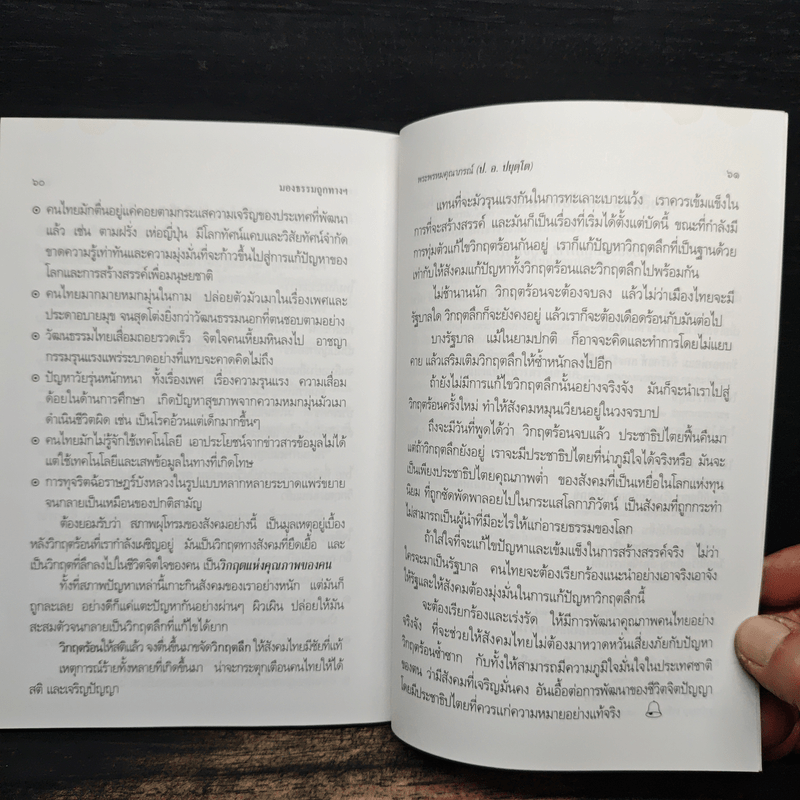 ๖๐
มองธรรมถูกทางฯ
๏ คนไทยมักตื่นอยู่แค่คอยตามกระแสความเจริญของประเทศที่พัฒนา
แล้ว เช่น ตามฝรั่ง เห่อญี่ปุ่น มีโลกทัศน์แคบและวิสัยทัศน์จำกัด
ขาดความรู้เท่าทันและความมุ่งมั่นที่จะก้าวขึ้นไปสู่การแก้ปัญหาของ
โลกและการสร้างสรรค์เพื่อมนุษยชาติ
๏ คนไทยมากมายหมกมุ่นในกาม ปล่อยตัวมัวเมาในเรื่องเพศและ
ประดาอบายมุข จนสุดโต่งยิ่งกว่าวัฒนธรรมนอกที่ตนชอบตามอย่าง
๏ วัฒนธรรมไทยเสื่อมถอยรวดเร็ว จิตใจคนเหี้ยมหินลงไป อาชญา
กรรมรุนแรงแพร่ระบาดอย่างที่แทบจะคาดคิดไม่ถึง
๏ ปัญหาวัยรุ่นหนักหนา ทั้งเรื่องเพศ เรื่องความรุนแรง ความเสื่อม
ด้อยในด้านการศึกษา เกิดปัญหาสุขภาพจากความหมกมุ่นมัวเมา
ดำเนินชีวิตผิด เช่น เป็นโรคอ้วนแต่เด็กมากขึ้นๆ
๏ คนไทยมักไม่รู้จักใช้เทคโนโลยี เอาประโยชน์จากข่าวสารข้อมูลไม่ได้
แต่ใช้เทคโนโลยีและเสพข้อมูลในทางที่เกิดโทษ
๏ การทุจริตฉ้อราษฎร์บังหลวงในรูปแบบหลากหลายระบาดแพร่ขยาย
จนกลายเป็นเหมือนของปกติสามัญ
ต้องยอมรับว่า สภาพผุโทรมของสังคมอย่างนี้ เป็นมูลเหตุอยู่เบื้อง
หลังวิกฤตร้อนที่เรากำลังเผชิญอยู่ มันเป็นวิกฤตทางสังคมที่ยืดเยื้อ และ
เป็นวิกฤตที่ลึกลงไปในชีวิตจิตใจของคน เป็นวิกฤตแห่งคุณภาพของคน
ทั้งที่สภาพปัญหาเหล่านี้เกาะกินสังคมของเราอย่างหนัก แต่มันก็
ถูกละเลย อย่างดีก็แค่แตะปัญหากันอย่างผ่านๆ ผิวเผิน ปล่อยให้มัน
สะสมตัวจนกลายเป็นวิกฤตลึกที่แก้ไขได้ยาก
วิกฤตร้อนให้สติแล้ว จงตื่นขึ้นมาขจัดวิกฤตลึก ให้สังคมไทยมีชัยที่แท้
เหตุการณ์ร้ายทั้งหลายที่เกิดขึ้นมา น่าจะกระตุกเตือนคนไทยให้ได้
สติ และเจริญปัญญา
พระพรหมคุณาภรณ์ (ป. อ. ปยุตฺโต)
๖๑
แทนที่จะมัวรุนแรงกันในการทะเลาะเบาะแว้ง เราควรเข้มแข็งใน
การที่จะสร้างสรรค์ และมันก็เป็นเรื่องที่เริ่มได้ตั้งแต่บัดนี้ ขณะที่กำลังมี
การทุ่มตัวแก้ไขวิกฤตร้อนกันอยู่ เราก็แก้ปัญหาวิกฤตลึกที่เป็นฐานด้วย
เท่ากับให้สังคมแก้ปัญหาทั้งวิกฤตร้อนและวิกฤตลึกไปพร้อมกัน
ไม่ช้านานนัก วิกฤตร้อนจะต้องจบลง แล้วไม่ว่าเมืองไทยจะมี
รัฐบาลใด วิกฤตลึกก็จะยังคงอยู่ แล้วเราก็จะต้องเดือดร้อนกับมันต่อไป
บางรัฐบาล แม้ในยามปกติ ก็อาจจะคิดและทำการโดยไม่แยบ
คาย แล้วเสริมเติมวิกฤตลึกให้ซ้ำหนักลงไปอีก
ถ้ายังไม่มีการแก้ไขวิกฤตลึกนั้นอย่างจริงจัง มันก็จะนำเราไปสู่
วิกฤตร้อนครั้งใหม่ ทำให้สังคมหมุนเวียนอยู่ในวงจรบาป
ถึงจะมีวันที่พูดได้ว่า วิกฤตร้อนจบแล้ว ประชาธิปไตยฟื้นคืนมา
แต่ถ้าวิกฤตลึกยังอยู่ เราจะมีประชาธิปไตยที่น่าภูมิใจได้จริงหรือ มันจะ
เป็นเพียงประชาธิปไตยคุณภาพต่ำ ของสังคมที่เป็นเหยื่อในโลกแห่งทุน
นิยม ที่ถูกซัดพัดพาลอยไปในกระแสโลกาภิวัตน์ เป็นสังคมที่ถูกกระทำ
ไม่สามารถเป็นผู้นำที่มีอะไรให้แก่อารยธรรมของโลก
ถ้าใส่ใจที่จะแก้ไขปัญหาและเข้มแข็งในการสร้างสรรค์จริง ไม่ว่า
ใครจะมาเป็นรัฐบาล คนไทยจะต้องเรียกร้องแนะนำอย่างเอาจริงเอาจัง
ให้รัฐและให้สังคมต้องมุ่งมั่นในการแก้ปัญหาวิกฤตลึกนี้
จะต้องเรียกร้องและเร่งรัด ให้มีการพัฒนาคุณภาพคนไทยอย่าง
จริงจัง ที่จะช่วยให้สังคมไทยไม่ต้องมาหวาดหวั่นเสี่ยงภัยกับปัญหา
วิกฤตร้อนซ้ำซาก กับทั้งให้สามารถมีความภูมิใจมั่นใจในประเทศชาติ
ของตน ว่ามีสังคมที่เจริญมั่นคง อันเอื้อต่อการพัฒนาของชีวิตจิตปัญญา
โดยมีประชาธิปไตยที่ควรแก่ความหมายอย่างแท้จริง